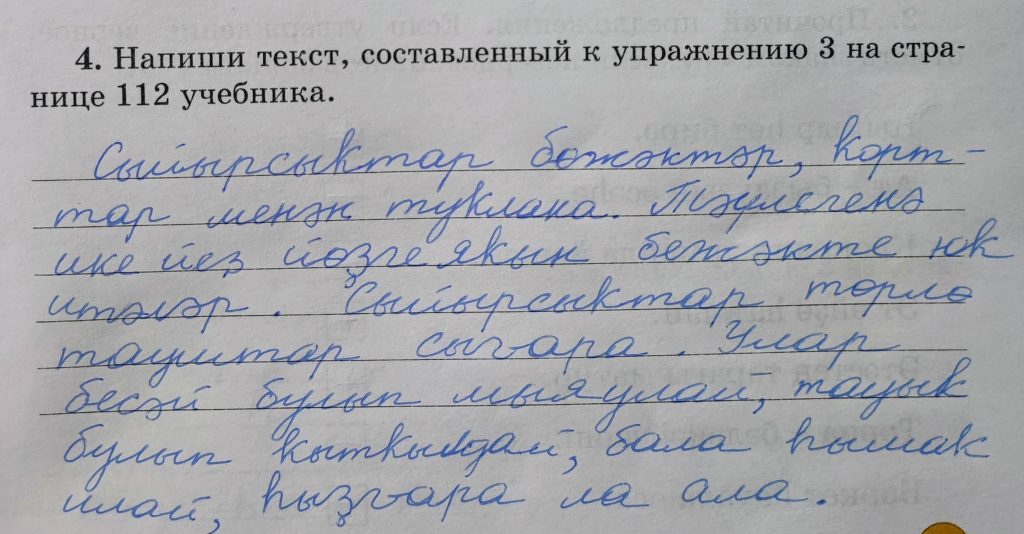 4. Напиши текст, составленный к упражнению 3 на стра-
нице 112 учебника.
Сыйырсыктар бөжәктәр, корт-
тар менән туклана. Тәүлегенә
ике йез йөҙгә якын бежәкте юк
итәләр. Сыйырсыктар төрлө
тауштар сығара. Улар
бесәй булып мыяулай, тауык
булып кыткылдай, бала һымак
илай, һыҙғара ла ала.